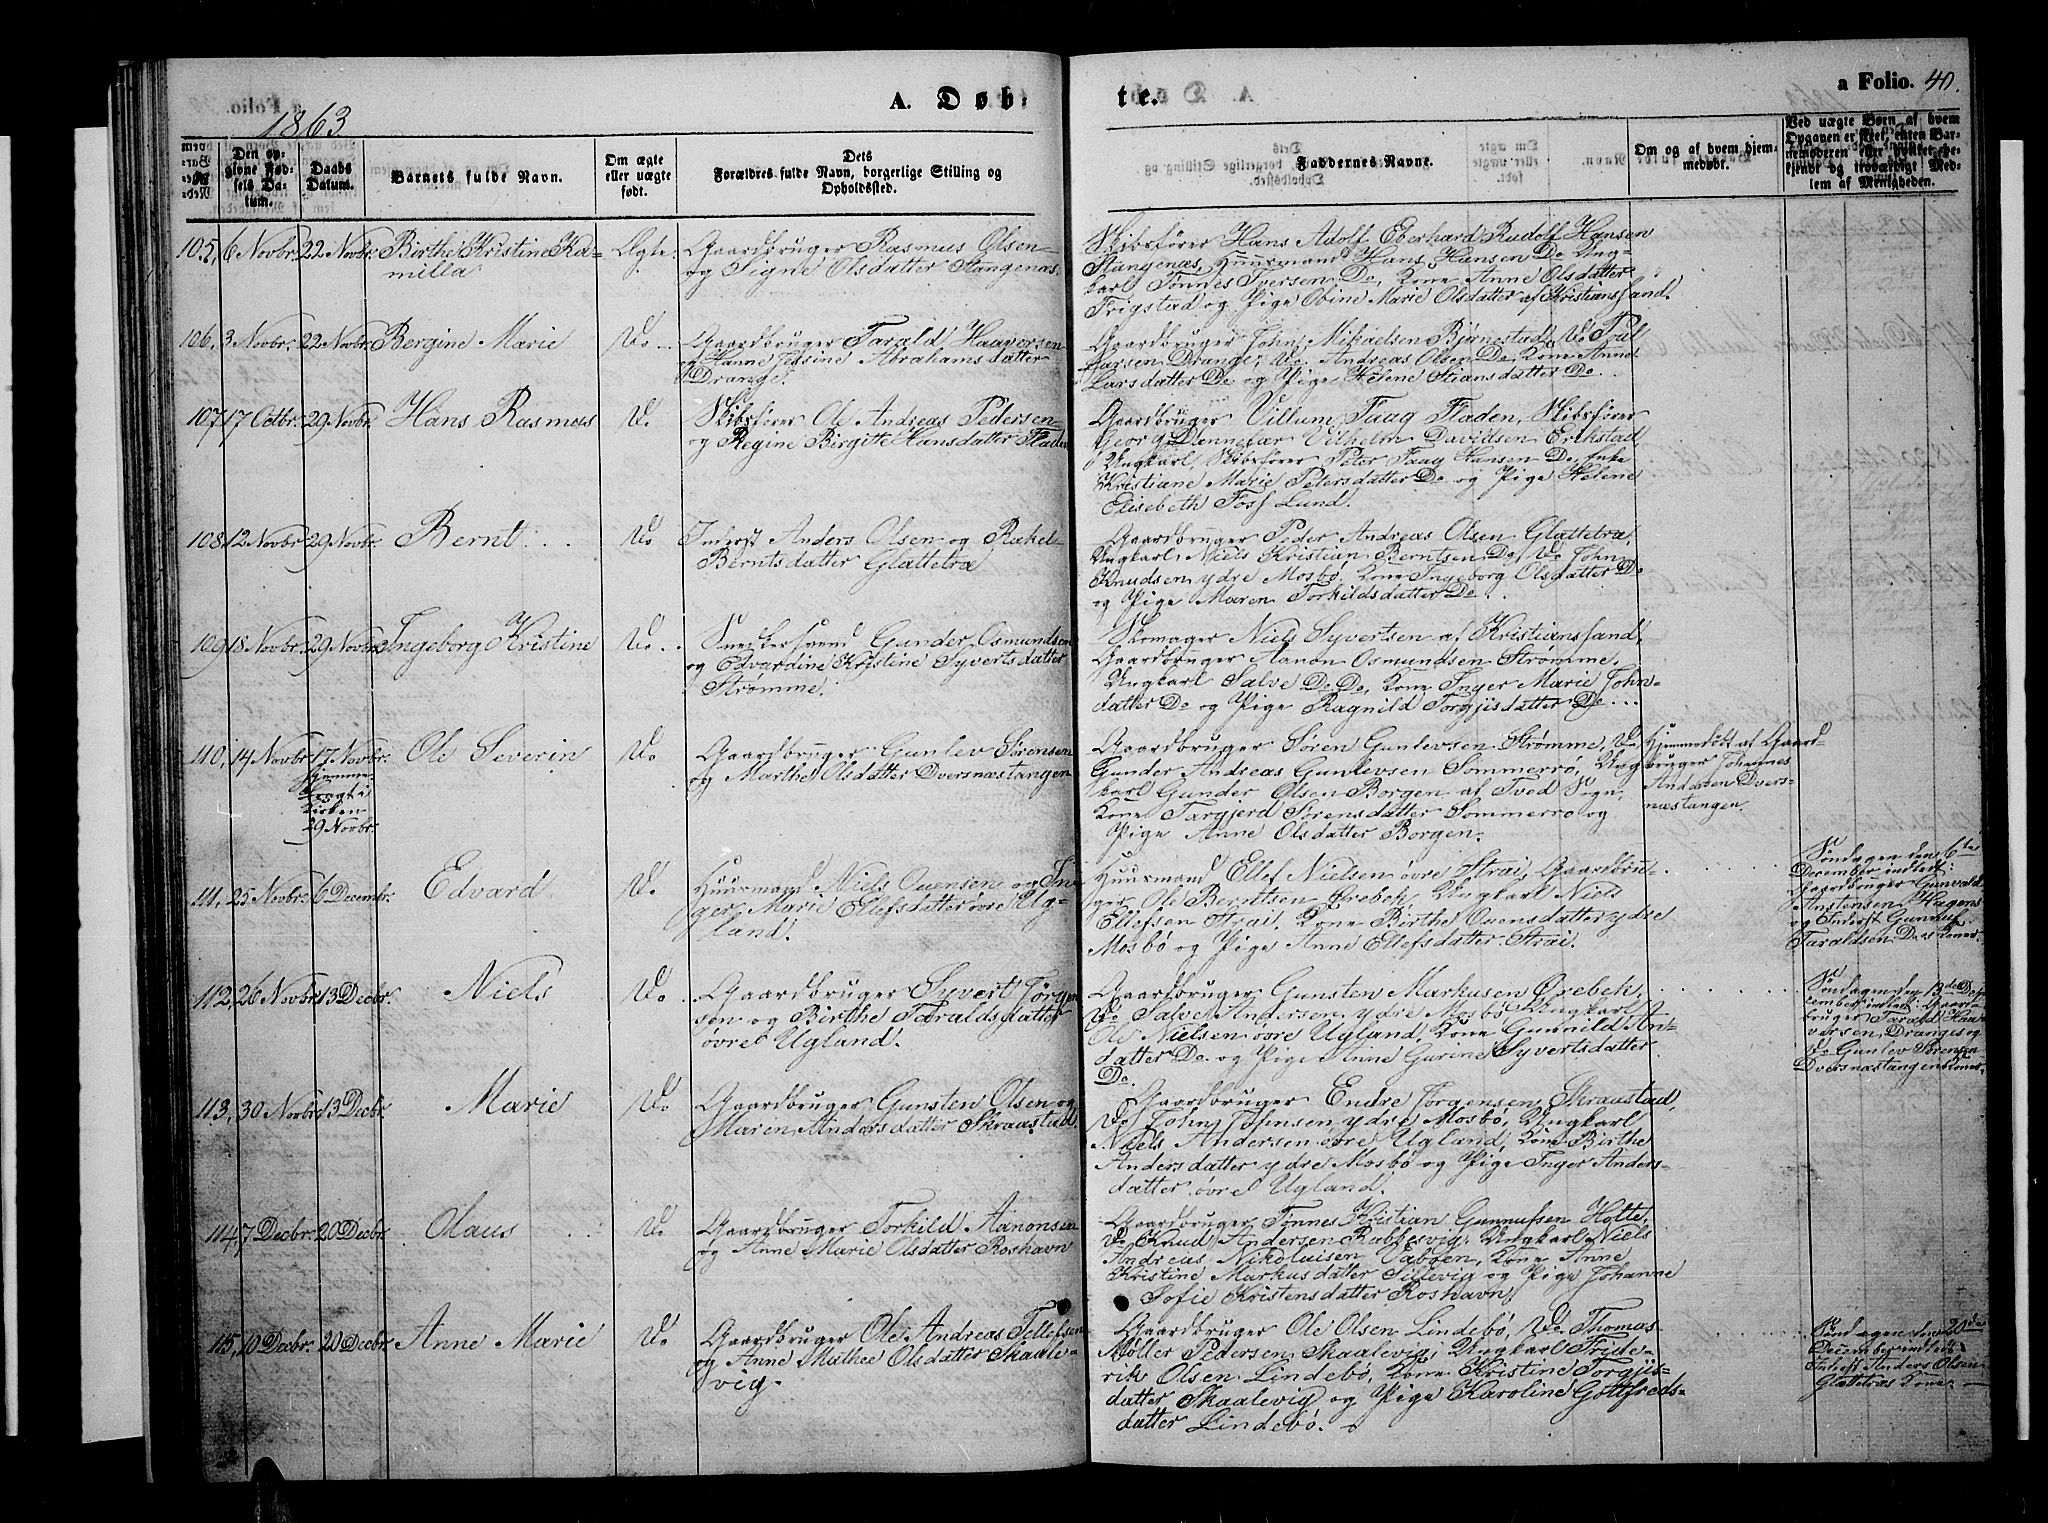 1863
A. Døb-
te.
a Folio. 40.
Den opgivne Fødsels Datum.
Daabs Datum.
Barnets fulde Navn.
Om ægte eller uægte født.
Dets Forældres fulde Navn, borgerlige Stilling og Opholdssted.
Faddernes Navne.
Om og af hvem hjemmedøbt.
Ved uægte Børn af hvem Opgaven er skeet, enten Barnemoderen eller hvilket bekjendt og troværdigt Medlem af Menigheden.
105, 6 Novbr. 22 Novbr. Birthe Kristine Ka-
milla
Ægte.
Gaardbruger Rasmus Olsen
og Signe Olsdatter Stangenæs.
Skibsfører Hans Adolf Eberhard Rudolf Hansen
Stangenæs, Huusmand Hans Hansen Do Ung-
karl Tønnes Iversen Do, Kone Anne Olsdatter
Frigstad og Pige Obine Marie Olsdatter af Kristianssand.
106, 3 Novbr. 22 Novbr. Bergine Marie
Do
Gaardbruger Tarald Haaversen
og Hanne Jessine Abrahamsdatter
Drange.
Gaardbruger John Mikaelsen Bjørnestad, Do Poul
Larsen Drange, Do Andreas Olsen Do, Kone Anne
Larsdatter Do og Pige Helene Stiansdatter Do
107, 17 Octbr. 29 Novbr. Hans Rasmus
Do
Skibsfører Ole Andreas Pedersen
og Regine Birgitte Hansdatter Fladen
Gaardbruger Villum Faag Fladen, Skibsfører
Georg Vilhelm Davidsen Erikstad,
Ungkarl, Skibsfører Peter Faag Hansen Do, Enke
Kristiane Marie Petersdatter Do og Pige Helene
Elisabeth Foss Lund.
108, 12 Novbr. 29 Novbr. Bernt
Do
Inderst Anders Olsen og Rakel
Berntsdatter Glattetræ
Gaardbruger Peder Andreas Olsen Glattetræ,
Ungkarl Niels Kristian Berntsen Do, Do John
Knudsen ydre Mosbø, Kone Ingeborg Olsdatter Do
og Pige Maren Torkildsdatter Do
109, 18 Novbr. 29 Novbr. Ingeborg Kristine
Do
Snedkersvend Gunder Osmundsen
og Edvardine Kristine Syvertsdatter
Strømme.
Skomager Niels Syvertsen af Kristianssand,
Gaardbruger Aanon Osmundsen Strømme,
Ungkarl Salve Do Do, Kone Inger Marie John-
datter Do og Pige Ragnild Torgjisdatter Do
110, 14 Novbr. 17 Novbr.
Hjemme.
Bragt i
Kirken
29 Novbr.
Ole Severin
Do
Gaardbruger Gunlev Sørensen
og Marthe Olsdatter Dversnæstangen
Gaardbruger Søren Gunlevsen Strømme, Do
Gunder Andreas Gunlevsen Sommerro, Ung
karl Gunder Olsen Borgen af Tved Sogn,
Kone Targjerd Sørensdatter Sommerro og
Pige Anne Olsdatter Borgen.
Hjemmedøbt af Gaard-
bruger Johannes
Andersen Dvers-
næstangen.
111, 25 Novbr. 6 Decembr. Edvard
Do
Huusmand Niels Ouensen og In-
ger Marie Ellefsdatter øvre Ug-
land.
Huusmand Ellef Nielsen øvre Strai, Gaardbru-
ger Ole Berntsen Ørebek, Ungkarl Niels
Ellefsen Strai, Kone Birthe Ouensdatter ydre
Mosbø og Pige Anne Ellefsdatter Strai.
Søndagen den 6te
December indledt:
Gaardbruger Gunvald
Anstensen Hagens
og Inderst Gunnuf
Taraldsen Do's Koner.
112, 26 Novbr. 13 Decbr. Niels
Do
Gaardbruger Syvert Jørgen
sen og Birthe Taraldsdatter
øvre Ugland.
Gaardbruger Gunsten Markusen Ørebek,
Do Salve Andersen ydre Mosbø, Ungkarl
Ole Nielsen øvre Ugland, Kone Gunnild An-
datter Do og Pige Anne Gurine Syvertsdatter
Do.
Søndagen den 13de De-
cember indledt: Gaard-
bruger Tarald Haa-
versen Dranges og
Do Gunlev Sørensen
Dversnæstangens Koner.
113, 30 Novbr. 13 Decbr. Marie
Do
Gaardbruger Gunsten Olsen og
Maren Andersdatter Skraastad,
Gaardbruger Endre Jørgensen Skraastad,
Do John Johnsen ydre Mosbø, Ungkarl
Niels Andersen øvre Ugland, Kone Birthe
Andersdatter ydre Mosbø og Pige Inger Anders-
datter øvre Ugland.
114, 7 Decbr. 20 Decbr. Olaus
Do
Gaardbruger Torkild Aanonsen
og Anne Marie Olsdatter Roshavn
Gaardbruger Tønnes Kristian Gunnufsen Holte,
Do Knud Andersen Rabbesvig, Ungkarl Niels
Andreas Nikolaisen Vabøen, Kone Anne
Kristine Markusdatter Sillevig og Pige Johanne
Sofie Kristensdatter Roshavn.
115, 10 Decbr. 20 Decbr. Anne Marie
Do
Gaardbruger Ole Andreas Tellefsen
og Anne Mathee Olsdatter Skaale-
vig.
Gaardbruger Ole Olsen Lindebø, Do Thomas
Møller Pedersen Skaalevig, Ungkarl Fride-
rik Olsen Lindebø, Kone Kristine Torgjis-
datter Skaalevig og Pige Karoline Gottfreds-
datter Lindebø.
Søndagen den 20de
December indledt:
Inderst Anders Olsen
Glattetræs Kone.